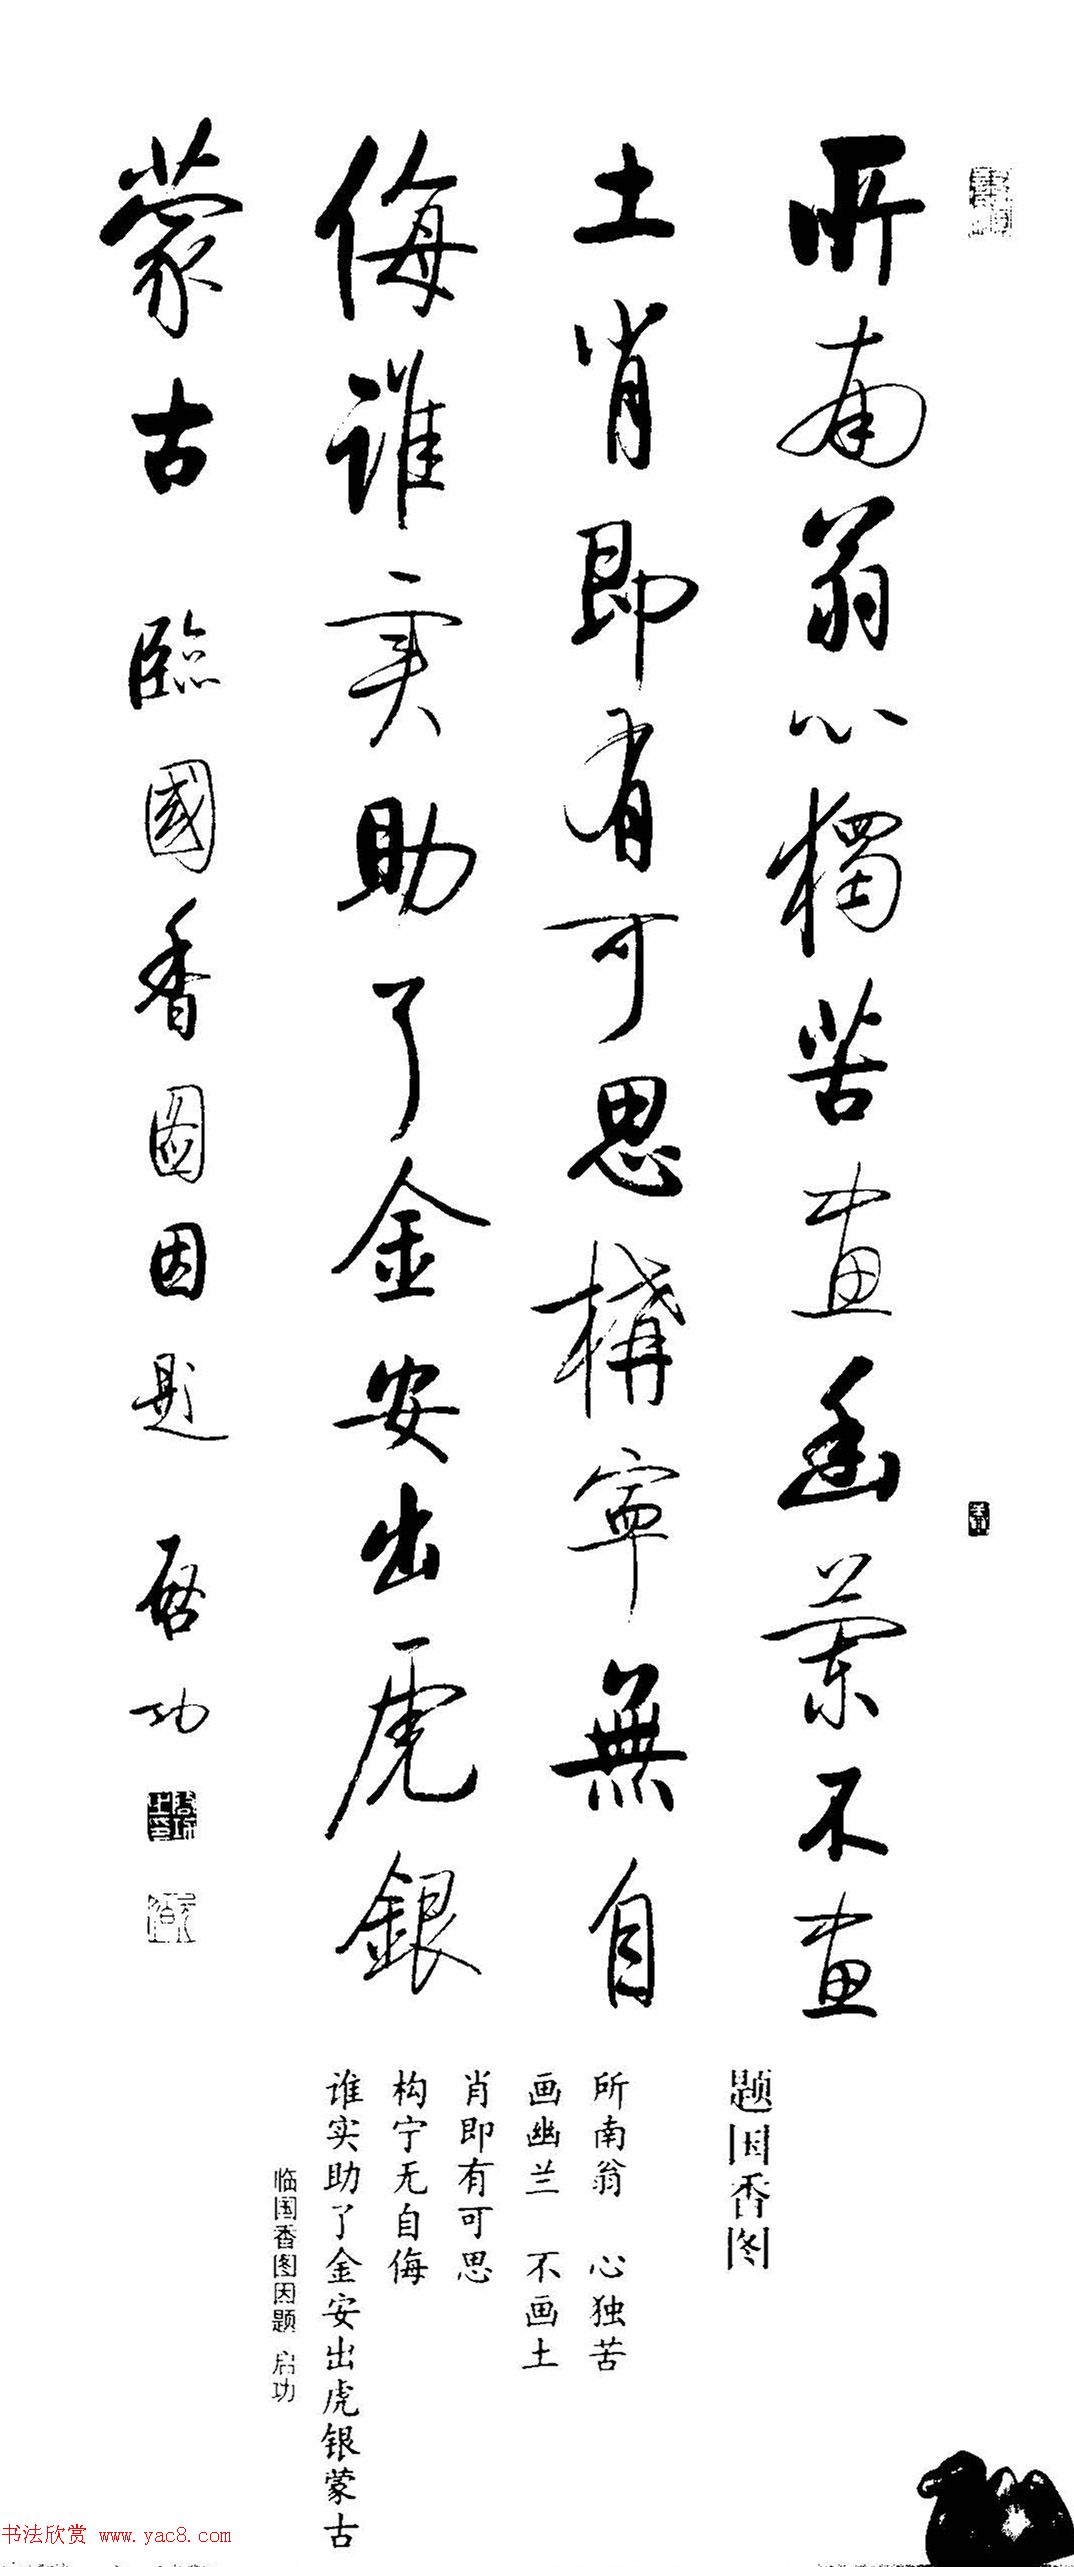 所南翁心獨苦畫幽蘭不畫
土肖即有可思構寧無自
侮誰実助了金安出虎銀
蒙古 臨國香圖因題 啓功
题国香图
所南翁 心独苦
画幽兰 不画土
肖即有可思
构宁无自侮
谁实助了金安出虎银蒙古
临国香图因题 启功
书法欣赏 www.yac8.com